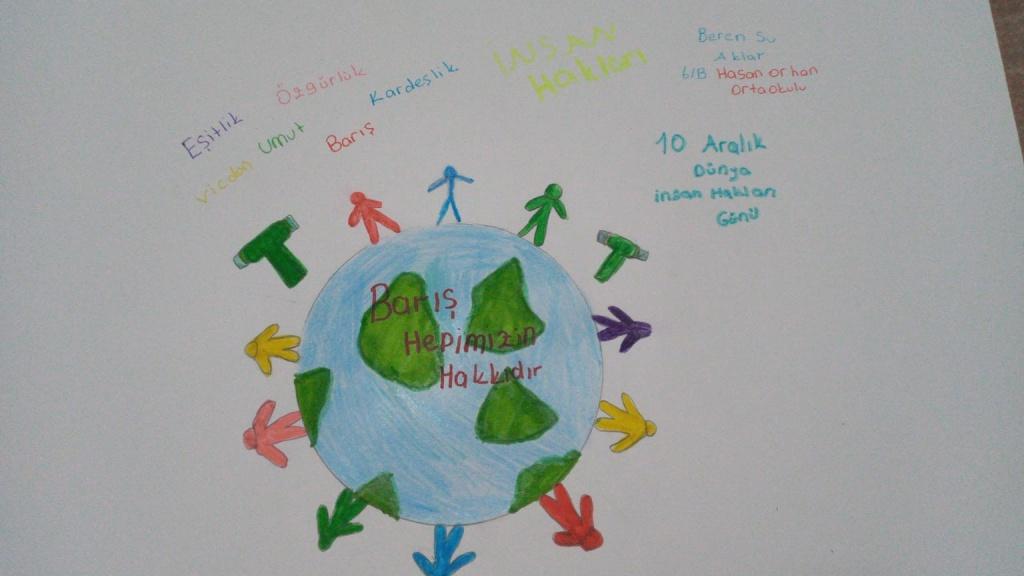 Eşitlik
Özgürlük
Kardeşlik
vicdan
umut
Barış
İNSAN
Hakları
Beren Su
Aklar
6/B. Hasan orhan
Ortaokulu
10 Aralık
Dünya
insan Hakları
Günü
Barış
Hepimizin
Hakkıdır